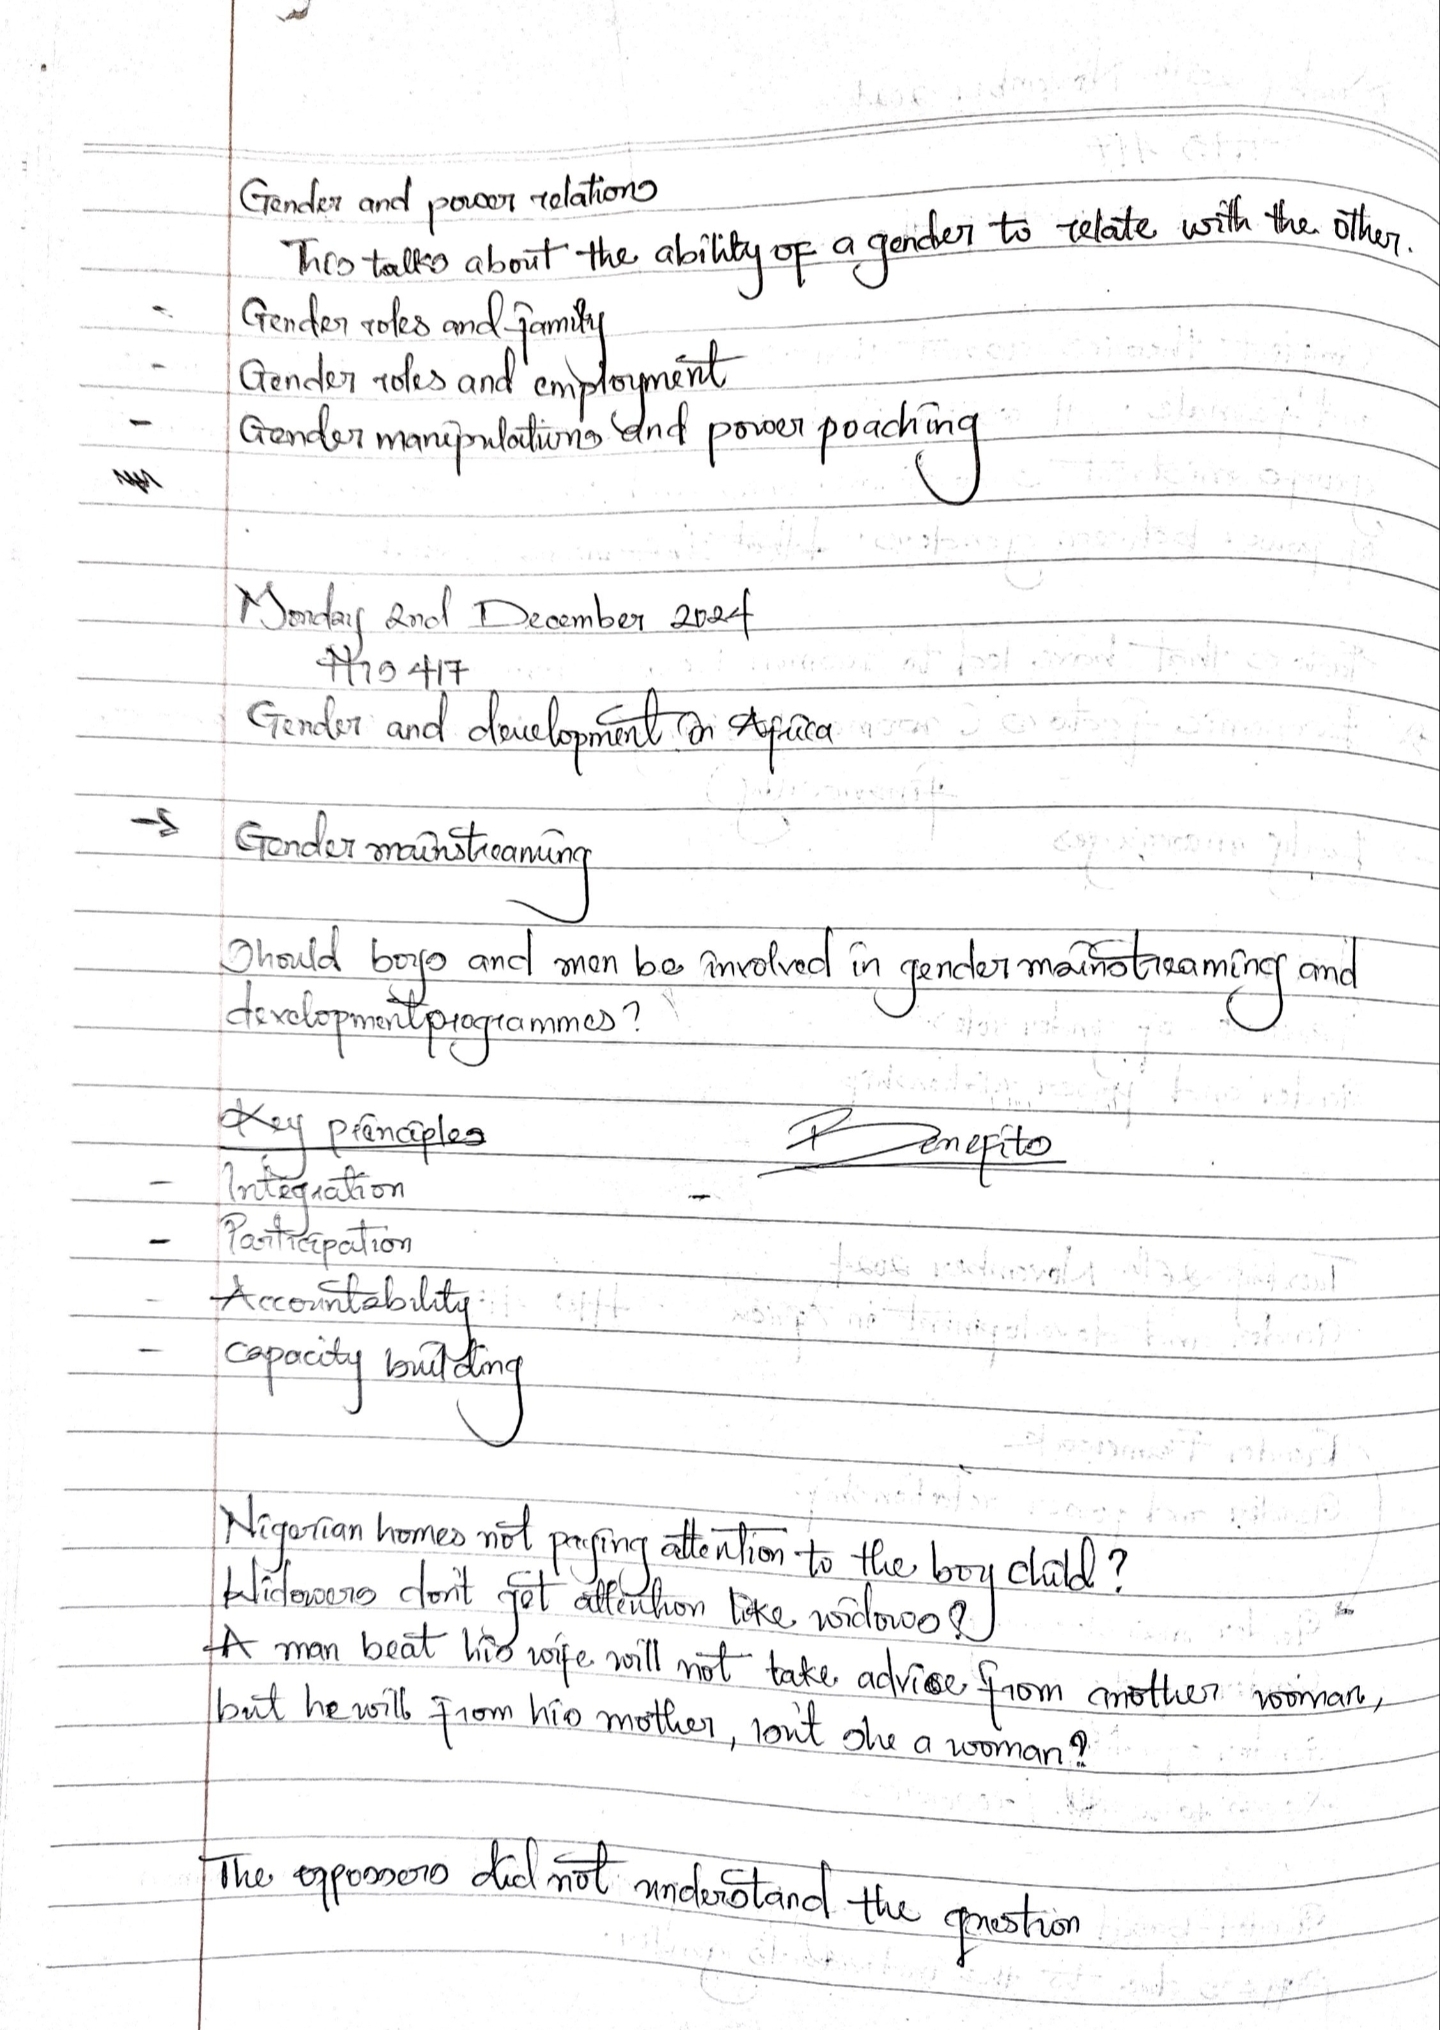 Gender and power relations
This talks about the ability of a gender to relate with the other.
- Gender roles and family
- Gender roles and employment
- Gender manipulations and power poaching
Monday 2nd December 2024
HIS 417
Gender and development in Africa
→ Gender mainstreaming
Should boys and men be involved in gender mainstreaming and
development programmes?
Key principles Benefits
- Integration -
- Participation
- Accountability
- Capacity building
Nigerian homes not paying attention to the boy child?
Widowers don't get attention like widows?
A man beat his wife will not take advice from another woman,
but he will from his mother, isn't she a woman?
The opposers did not understand the question